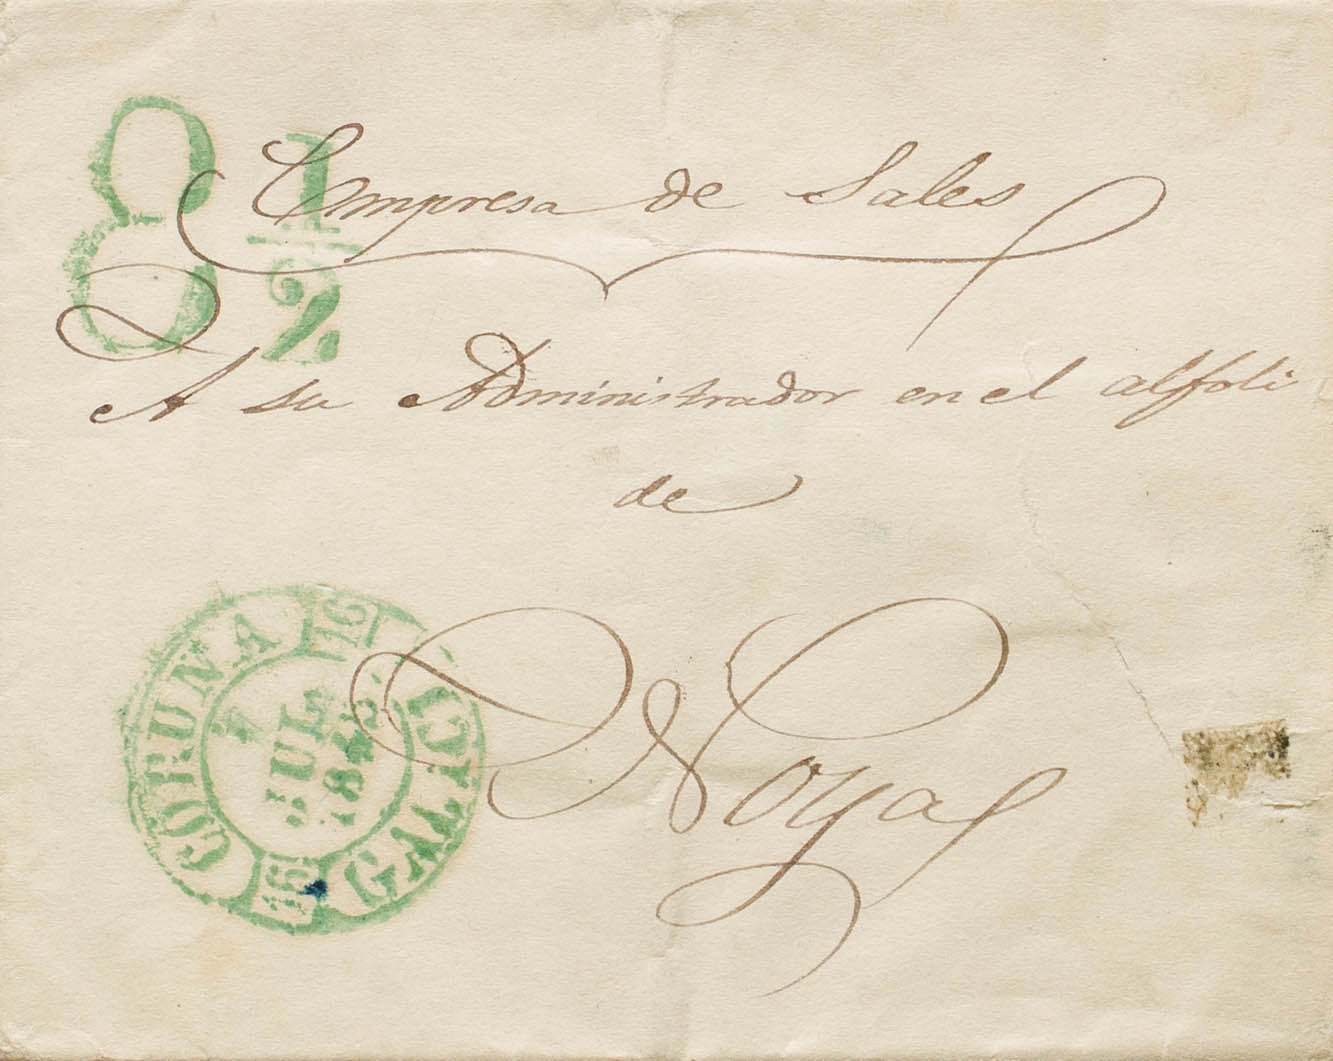 8 1/2
Empresa de Sales
A su Administrador en el alfoli
de
Noya
CORUÑA
16
GALICI
16
7
JUL
1845